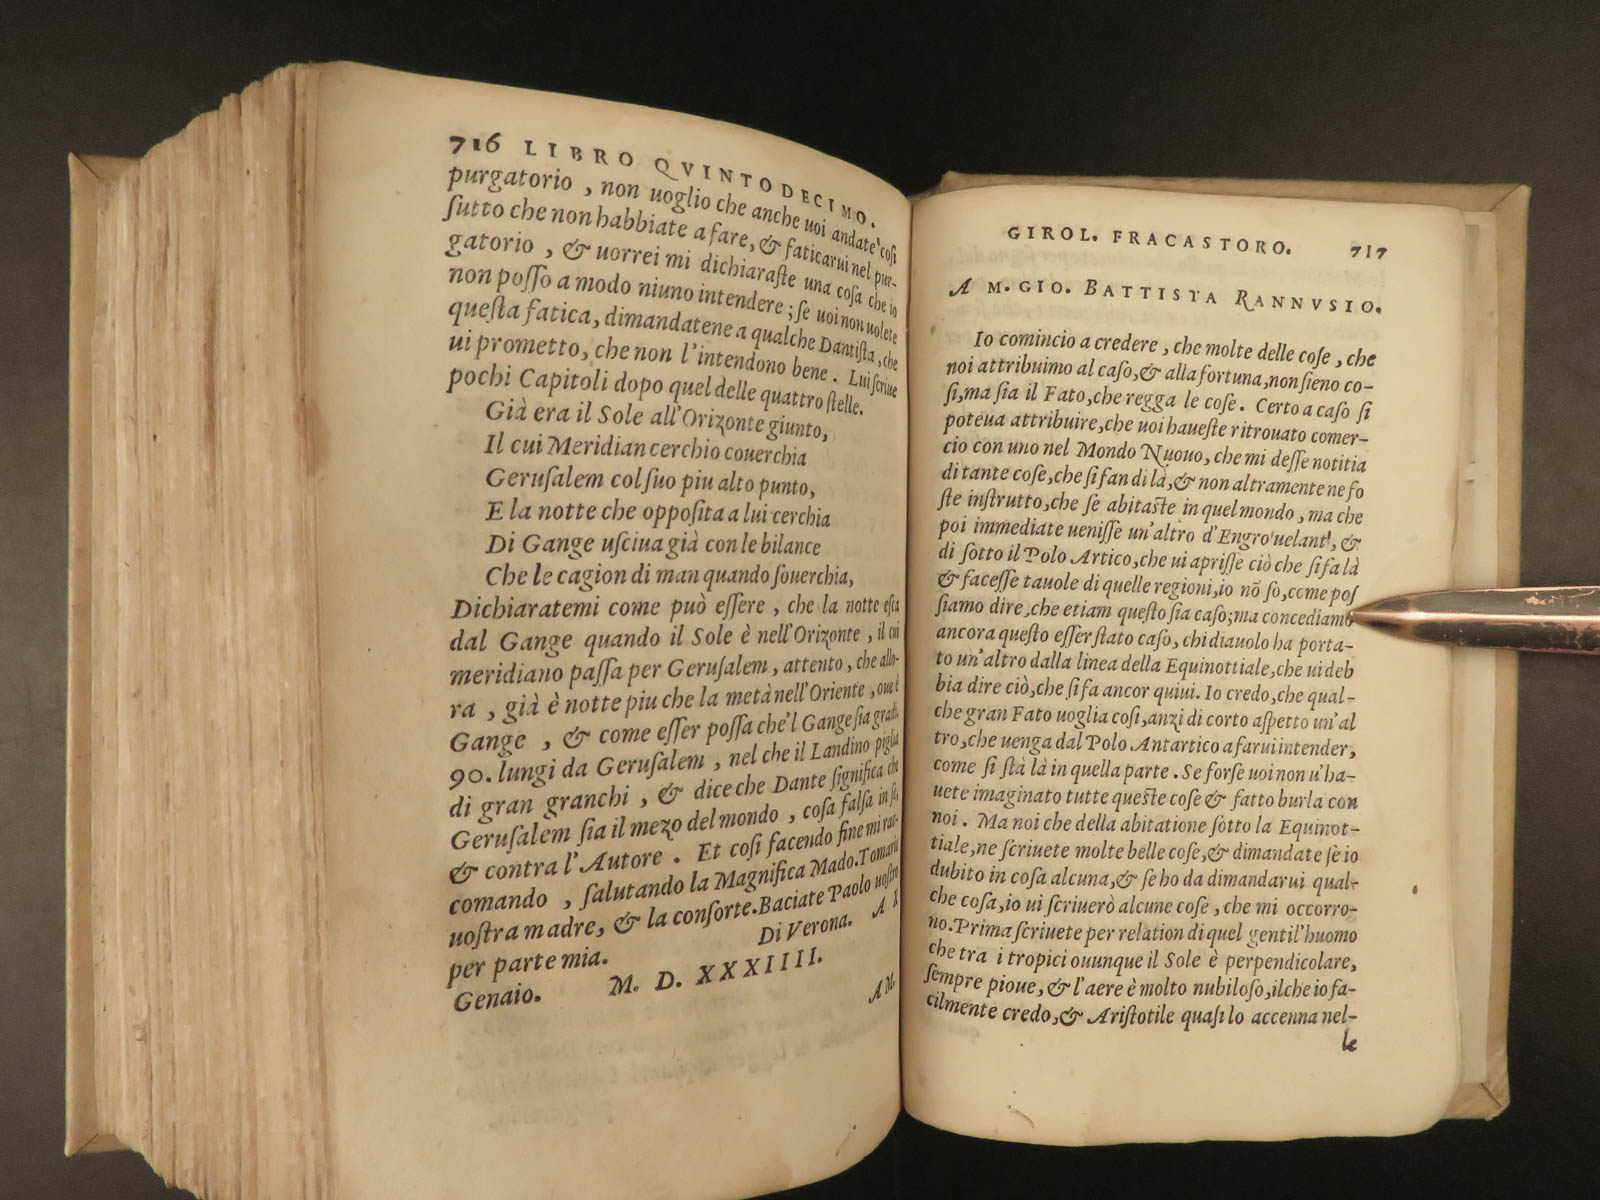 716 LIBRO QVINTODECIMO.
purgatorio, non uoglio che anche uoi andate cosi
sutto che non habbiate a fare, & faticarui nel pur-
gatorio, & uorrei mi dichiaraste una cosa che io
non posso a modo niuno intendere; se uoi non uolete
questa fatica, dimandatene a qualche Dantista, che
ui prometto, che non l'intendono bene. Lui scriue
pochi Capitoli dopo quel delle quattro stelle.
Già era il Sole all'Orizonte giunto,
Il cui Meridian cerchio couerchia
Gerusalem col suo piu alto punto,
E la notte che opposita a lui cerchia
Di Gange usciua già con le bilance
Che le cagion di man quando souerchia,
Dichiaratemi come può essere, che la notte esca
dal Gange quando il Sole è nell'Orizonte, il cui
meridiano passa per Gerusalem, attento, che allo-
ra, già è notte piu che la metà nell'Oriente, oue è
Gange, & come esser possa che'l Gange sia gradi.
90. lungi da Gerusalem, nel che il Landino piglia
di gran granchi, & dice che Dante significa che
Gerusalem sia il mezo del mondo, cosa falsa in se,
& contra l'Autore. Et cosi facendo fine mi rac-
comando, salutando la Magnifica Mado. Tomaria
uostra madre, & la consorte. Baciate Paolo uostro
per parte mia. Di Verona. A I
Genaio. M. D. XXXIIII.
AM.
GIROL. FRACASTORO. 717
A M. GIO. BATTISTA RANNVSIO.
Io comincio a credere, che molte delle cose, che
noi attribuimo al caso, & alla fortuna, non sieno co-
si, ma sia il Fato, che regga le cose. Certo a caso si
poteua attribuire, che uoi haueste ritrouato comer-
cio con uno nel Mondo Nuouo, che mi desse notitia
di tante cose, che si fan di là, & non altramente ne fo
ste instrutto, che se abitaste in quel mondo, ma che
poi immediate uenisse un'altro d'Engrouelant, &
di sotto il Polo Artico, che ui aprisse ciò che si fa là
& facesse tauole di quelle regioni, io nõ so, come pos
siamo dire, che etiam questo sia caso; ma concediamo
ancora questo esser stato caso, chi diauolo ha porta-
to un'altro dalla linea della Equinottiale, che ui deb
bia dire ciò, che si fa ancor quiui. Io credo, che qual-
che gran Fato uoglia cosi, anzi di corto aspetto un'al
tro, che uenga dal Polo Antartico a farui intender,
come si stà là in quella parte. Se forse uoi non u'ha-
uete imaginato tutte queste cose & fatto burla con
noi. Ma noi che della abitatione sotto la Equinot-
tiale, ne scriuete molte belle cose, & dimandate se io
dubito in cosa alcuna, & se ho da dimandarui qual-
che cosa, io ui scriuerò alcune cose, che mi occorro-
no. Prima scriuete per relation di quel gentil'huomo
che tra i tropici ouunque il Sole è perpendicolare,
sempre pioue, & l'aere è molto nubiloso, il che io fa-
cilmente credo, & Aristotile quasi lo accenna nel-
le